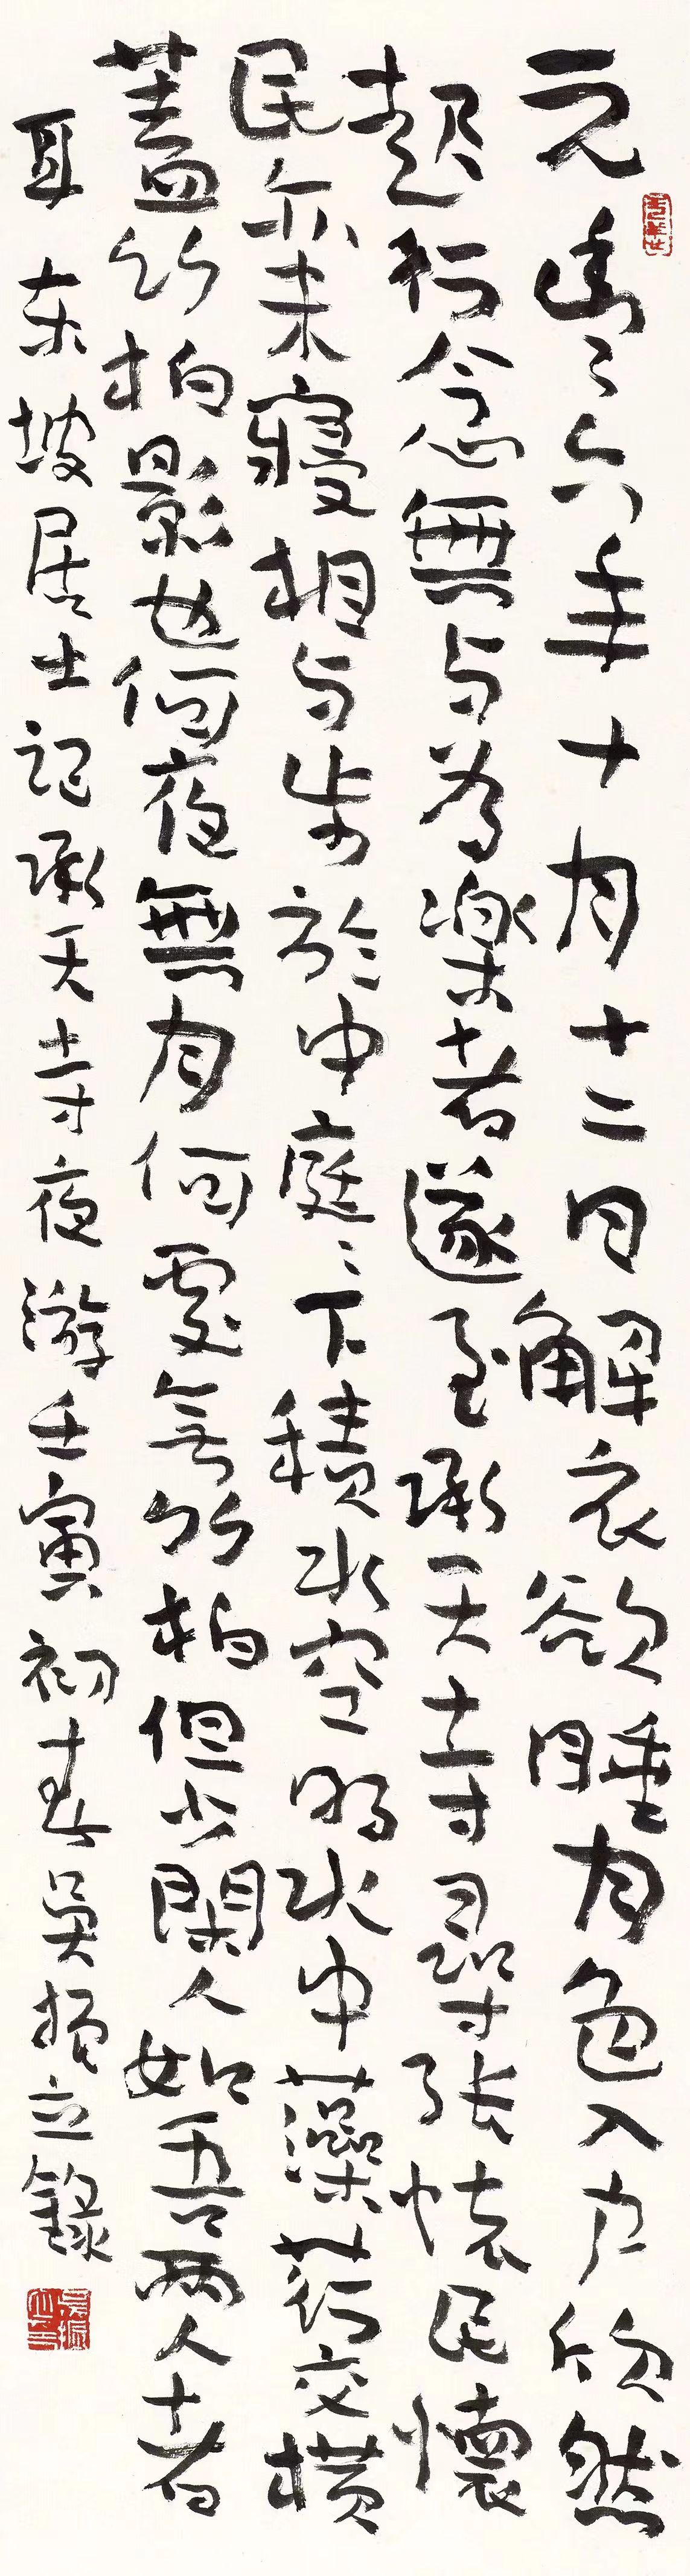 元豐六年十月十二日解衣欲睡月色入户欣然
起行念無与為樂者遂至承天寺尋張怀民懷
民亦未寢相与步於中庭〻下積水空明水中藻荇交横
蓋竹柏影也何夜無月何處無竹柏但少閑人如吾兩人者
耳 东坡居士記承天寺夜游壬寅初春吴振立録